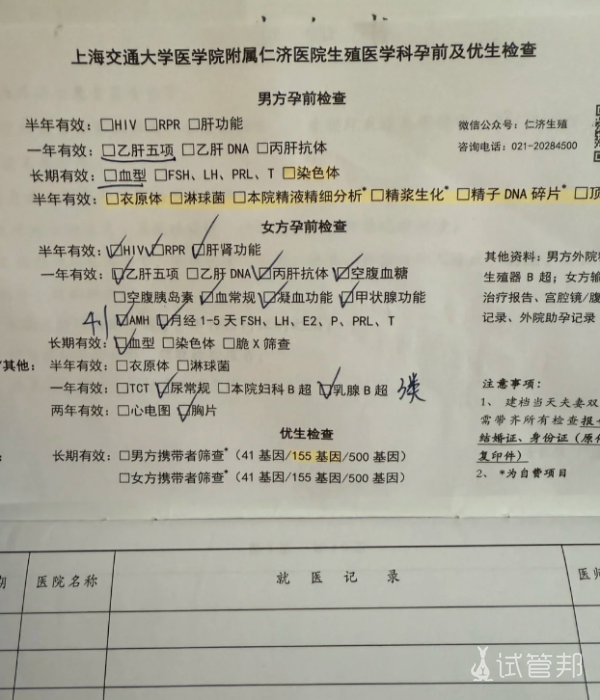 上海交通大学医学院附属仁济医院生殖医学科孕前及优生检查
男方孕前检查
半年有效：□HIV □RPR □肝功能
微信公众号：仁济生殖
一年有效：□乙肝五项 □乙肝 DNA □丙肝抗体
咨询电话：021-20284500
长期有效：□血型 □FSH、LH、PRL、T □染色体
半年有效：□衣原体 □淋球菌 □本院精液精细分析* □精浆生化* □精子 DNA 碎片* □顶
女方孕前检查
半年有效：☑HIV ☑RPR ☑肝肾功能
其他资料：男方外院精
一年有效：☑乙肝五项 □乙肝 DNA ☑丙肝抗体 ☑空腹血糖
生殖器 B 超；女方输
□空腹胰岛素 ☑血常规 ☑凝血功能 ☑甲状腺功能
治疗报告、宫腔镜/腹
☑AMH ☑月经 1-5 天 FSH、LH、E2、P、PRL、T
记录、外院助孕记录
长期有效：☑血型 □染色体 □脆 X 筛查
/其他：半年有效：□衣原体 □淋球菌
一年有效：□TCT ☑尿常规 □本院妇科 B 超 ☑乳腺 B 超 3类
注意事项：
两年有效：□心电图 ☑胸片
1、 建档当天夫妻双
优生检查
需带齐所有检查报
长期有效：□男方携带者筛查*（41 基因/155 基因/500 基因）
结婚证、身份证（原件
复印件）
□女方携带者筛查*（41 基因/155 基因/500 基因）
2、 *为自费项目
期 医院名称 就 医 记 录 医师
试管邦